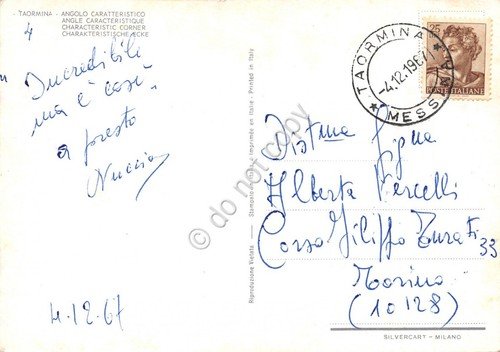 - TAORMINA - ANGOLO CARATTERISTICO
ANGLE CARACTERISTIQUE
CHARACTERISTIC CORNER
CHARAKTERISTISCHE ECKE
4
Incredibile
ma è così.
a presto
Nuccia
4.12.67
Riproduzione Vietata - Stampato in Italia - Imprimée en Italie - Printed in Italy
do not copy
TAORMINA
4.12.1967
MESSINA
25
POSTE ITALIANE
Dist.ma Sig.na
Alberta Vercelli
Corso Filippo Turati 33
Torino
(10128)
SILVERCART - MILANO